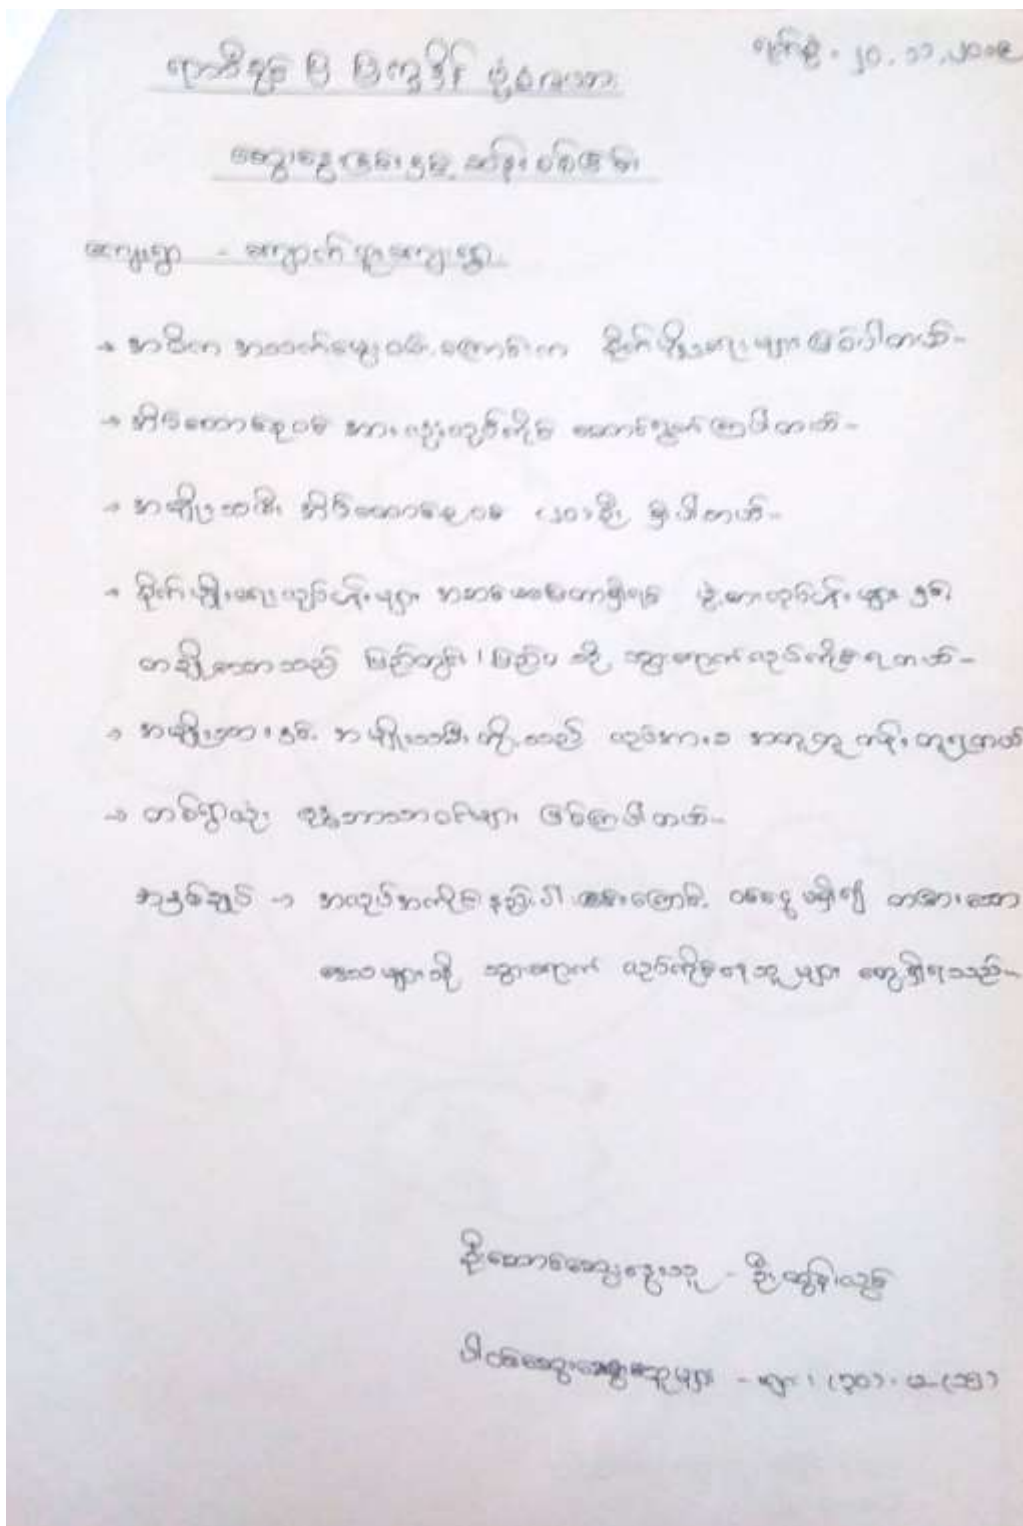 ရက်စွဲ - ၂၀.၁၁.၂၀၀၉
ရာသီစဉ် ပြ ပြက္ခဒိန်
ဆွေးနွေးခန်းမှ ဆန်းစစ်ခြင်း
ကျေးရွာ - ကျောက် ကျေးရွာ
→ အဓိက အသက်မွေးဝမ်းကြောင်းက စိုက်ပျိုးရေးများ ဖြစ်ပါတယ်-
→ အိမ်ထောင်စုဝင် အားလုံးလုပ်ကိုင် ဆောင်ရွက်ကြပါတယ်-
→ အမျိုးသမီး အိမ်ထောင်စုဝင် (၂၀)ဦး ရှိပါတယ်-
→ စိုက်ပျိုးရေးလုပ်ငန်းများ အဆင်မပြေတာရှိရင် လုပ်ငန်းများ နှင့်
တချို့သောသည် ပြည်တွင်း၊ ပြည်ပ သို့ သွားရောက်လုပ်ကိုင်ရတယ်-
→ အမျိုးသားနှင့် အမျိုးသမီးတို့သည် လုပ်အားခ အတူတူ တန်းတူရတယ်
→ တစ်ရွာလုံး ဗုဒ္ဓဘာသာဝင်များ ဖြစ်ကြပါတယ်-
သုံးသပ်ချက် → အလုပ်အကိုင်နည်းပါးခြင်းကြောင့် ဝင်ငွေ မရှိ၍ တခြားသော
ဒေသများသို့ သွားရောက် လုပ်ကိုင်နေသူများ တွေ့ရှိရသည်-
ဦးဆောင်ဆွေးနွေးသူ - ဦးထွန်းလှိုင်
ပါဝင်ဆွေးနွေးသူများ - ကျား (၃၀)၊ မ-(၁၅)